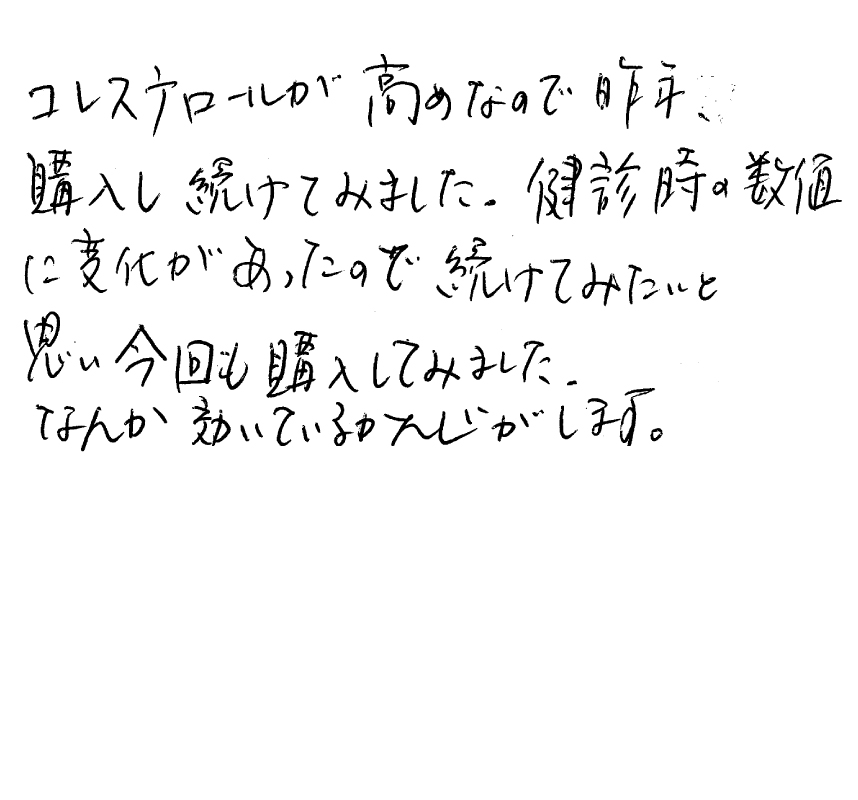 コレステロールが高めなので昨年、
購入し続けてみました。健診時の数値
に変化があったので続けてみたいと
思い今回も購入してみました。
なんか効いているかんじがします。